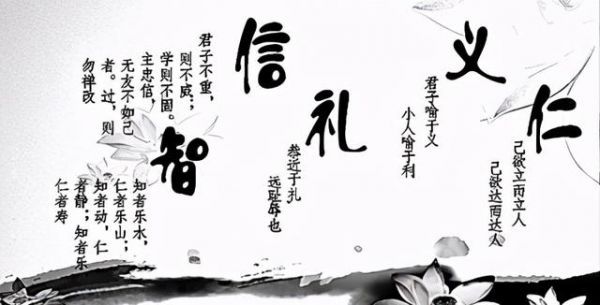 仁
己欲立而立人
己欲达而达人
义
君子喻于义
小人喻于利
礼
恭近于礼
远耻辱也
信
君子不重,
则不威;
学则不固。
主忠信,
无友不如己
者。过,则
勿禅改
智
知者乐水,
仁者乐山;
知者动,仁
者静;知者乐
仁者寿